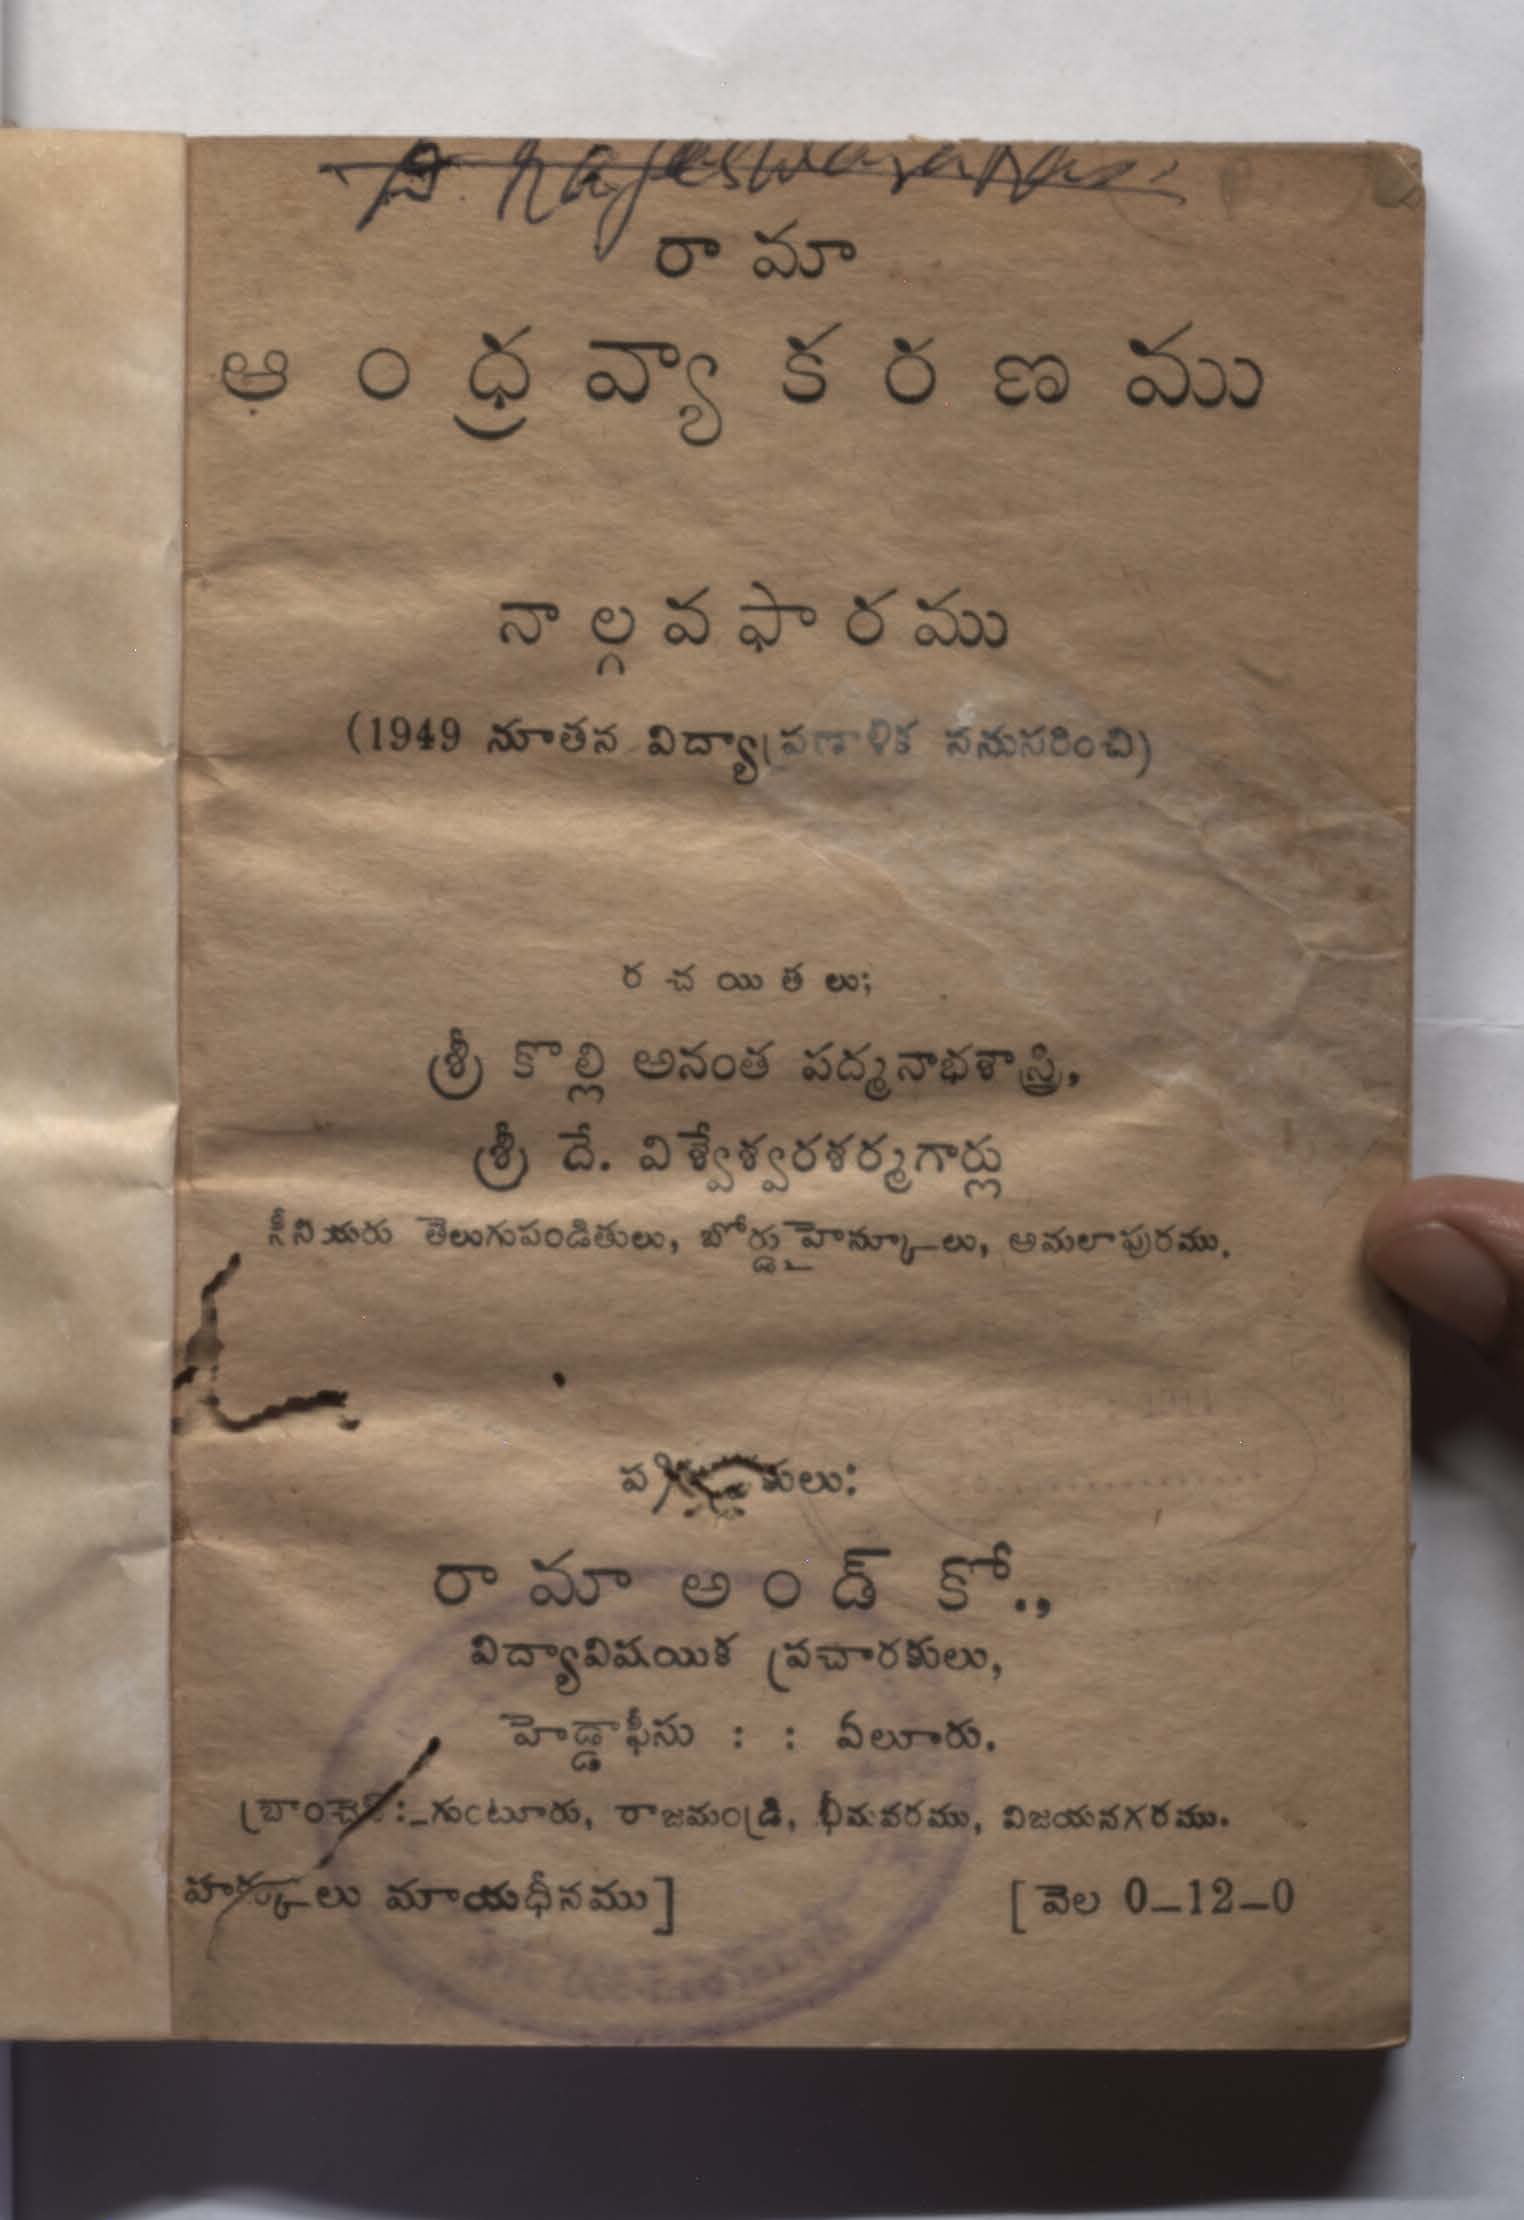 రామా
ఆంధ్రవ్యాకరణము
నాల్గవఫారము
(1949 నూతన విద్యాప్రణాళిక ననుసరించి)
రచయితలు;
శ్రీ కొల్లి అనంత పద్మనాభశాస్త్రి,
శ్రీ దే. విశ్వేశ్వరశర్మగార్లు
సీనియరు తెలుగుపండితులు, బోర్డుహైస్కూలు, అమలాపురము.
రామా అండ్ కో.,
విద్యావిషయిక ప్రచారకులు,
హెడ్డాఫీసు : : ఏలూరు.
బ్రాంచెస్:-గుంటూరు, రాజమండ్రి, భీమవరము, విజయనగరము.
హక్కులు మాయధీనము] [వెల 0-12-0